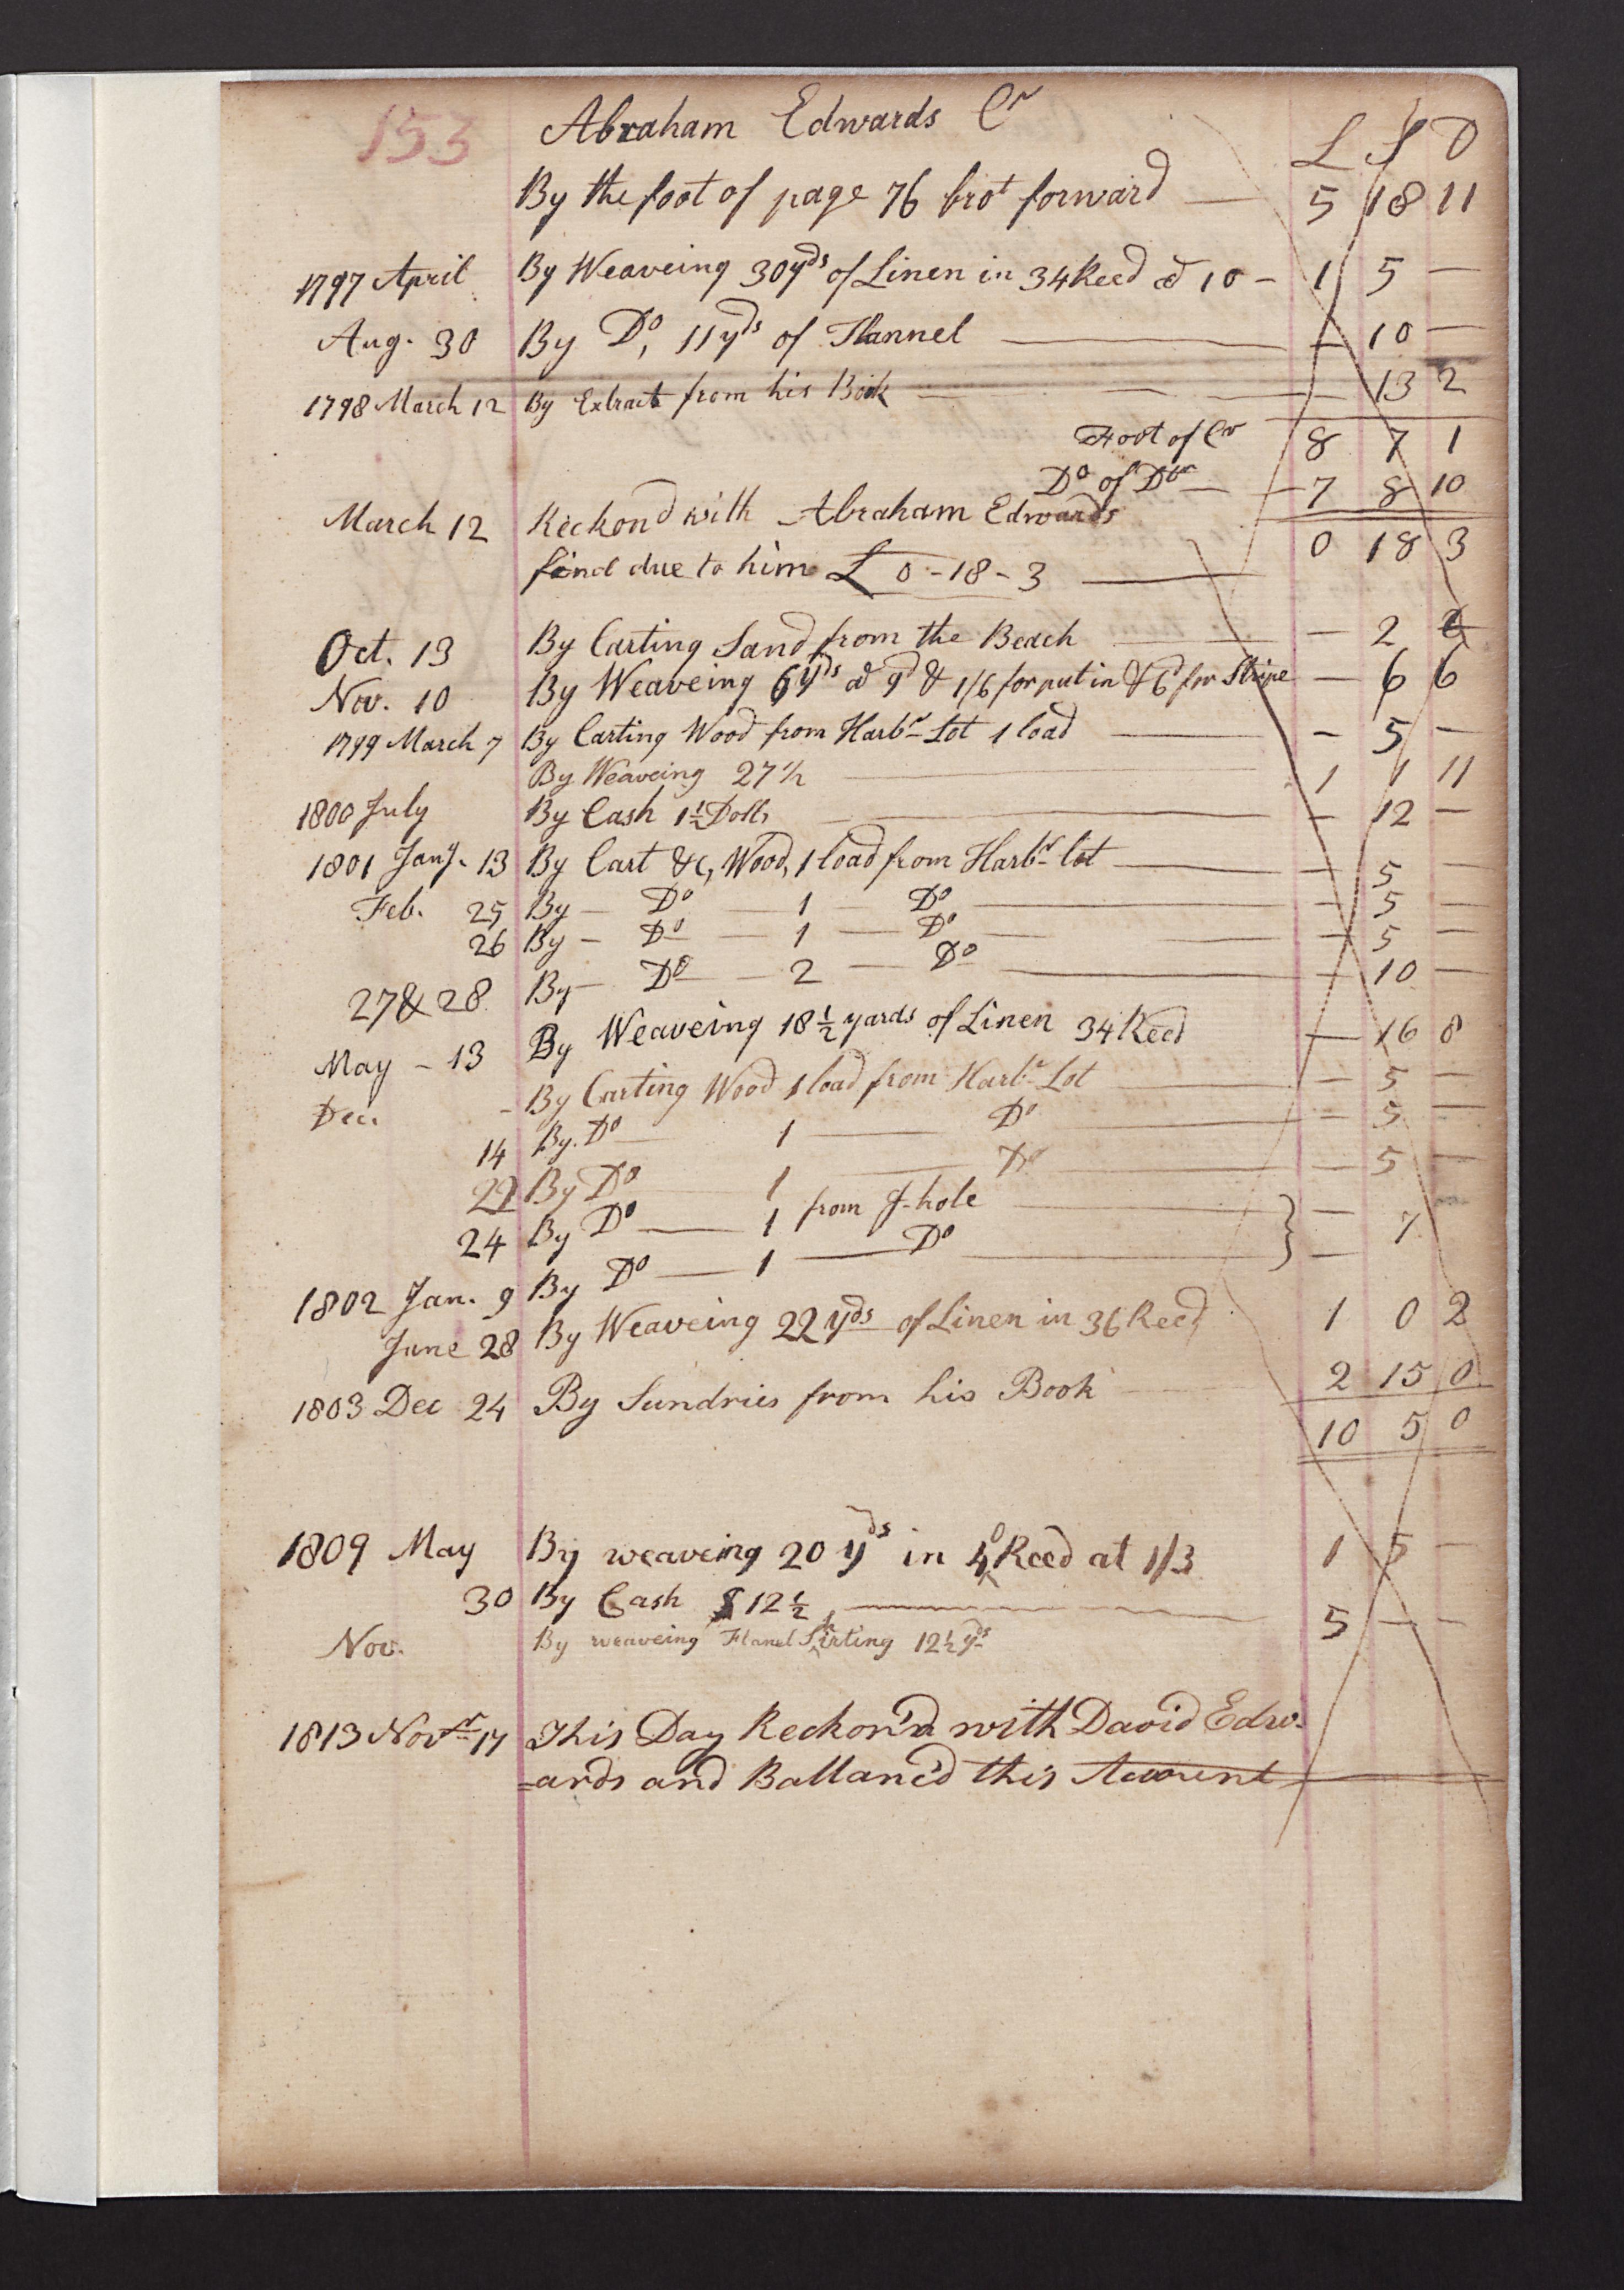 153 Abraham Edwards Cr
L S D
By the foot of page 76 brot forward — 5 18 11
1797 April By Weaveing 30yds of Linen in 34 Reed @ 10 - 1 5 —
Aug. 30 By Do, 11 yds of Flannel — — 10 —
1798 March 12 By Extract from his Book — — 13 2
Foot of Cr 8 7 1
Do of Dtr — 7 8 10
March 12 Reckond with Abraham Edwards
find due to him £ 0-18-3 — 0 18 3
Oct. 13 By Carting Sand from the Beach — 2
Nov. 10 By Weaveing 6 yds @ 9d & 1/6 for put in & 6d for Stripe — 6 6
1799 March 7 By Carting Wood from Harbr Lot 1 load — 5 —
By Weaveing 27 1/2 — 1 1 11
1800 July By Cash 1 1/2 Dolls — — 12 —
1801 Jany. 13 By Cart &c, Wood, 1 load from Harbr lot — — 5 —
Feb. 25 By — Do — 1 — Do — — 5 —
26 By — Do — 1 — Do — — 5 —
27 & 28 By — Do — 2 — Do — — 10 —
May - 13 By Weaveing 18 1/2 yards of Linen 34 Reed — 16 8
Dec. - By Carting Wood 1 load from Harbr Lot — — 5 —
14 By Do — 1 — Do — — 5 —
22 By Do 1 — Do — — 5 —
24 By Do — 1 from J-hole — } —
1802 Jan. 9 By Do — 1 — Do — } — 7
June 28 By Weaveing 22 yds of Linen in 36 Reed 1 0 2
1803 Dec 24 By Sundries from his Book 2 15 0
10 5 0
1809 May By weaveing 20 yds in 40 Reed at 1/3 1 5 —
30 By Cash $ 12 1/2 — 5 — —
Nov. By weaveing Flanel Shirting 12 1/2 yds
1813 Novr 17 This Day Reckon'd with David Edw-
-ards and Ballanc'd this Account